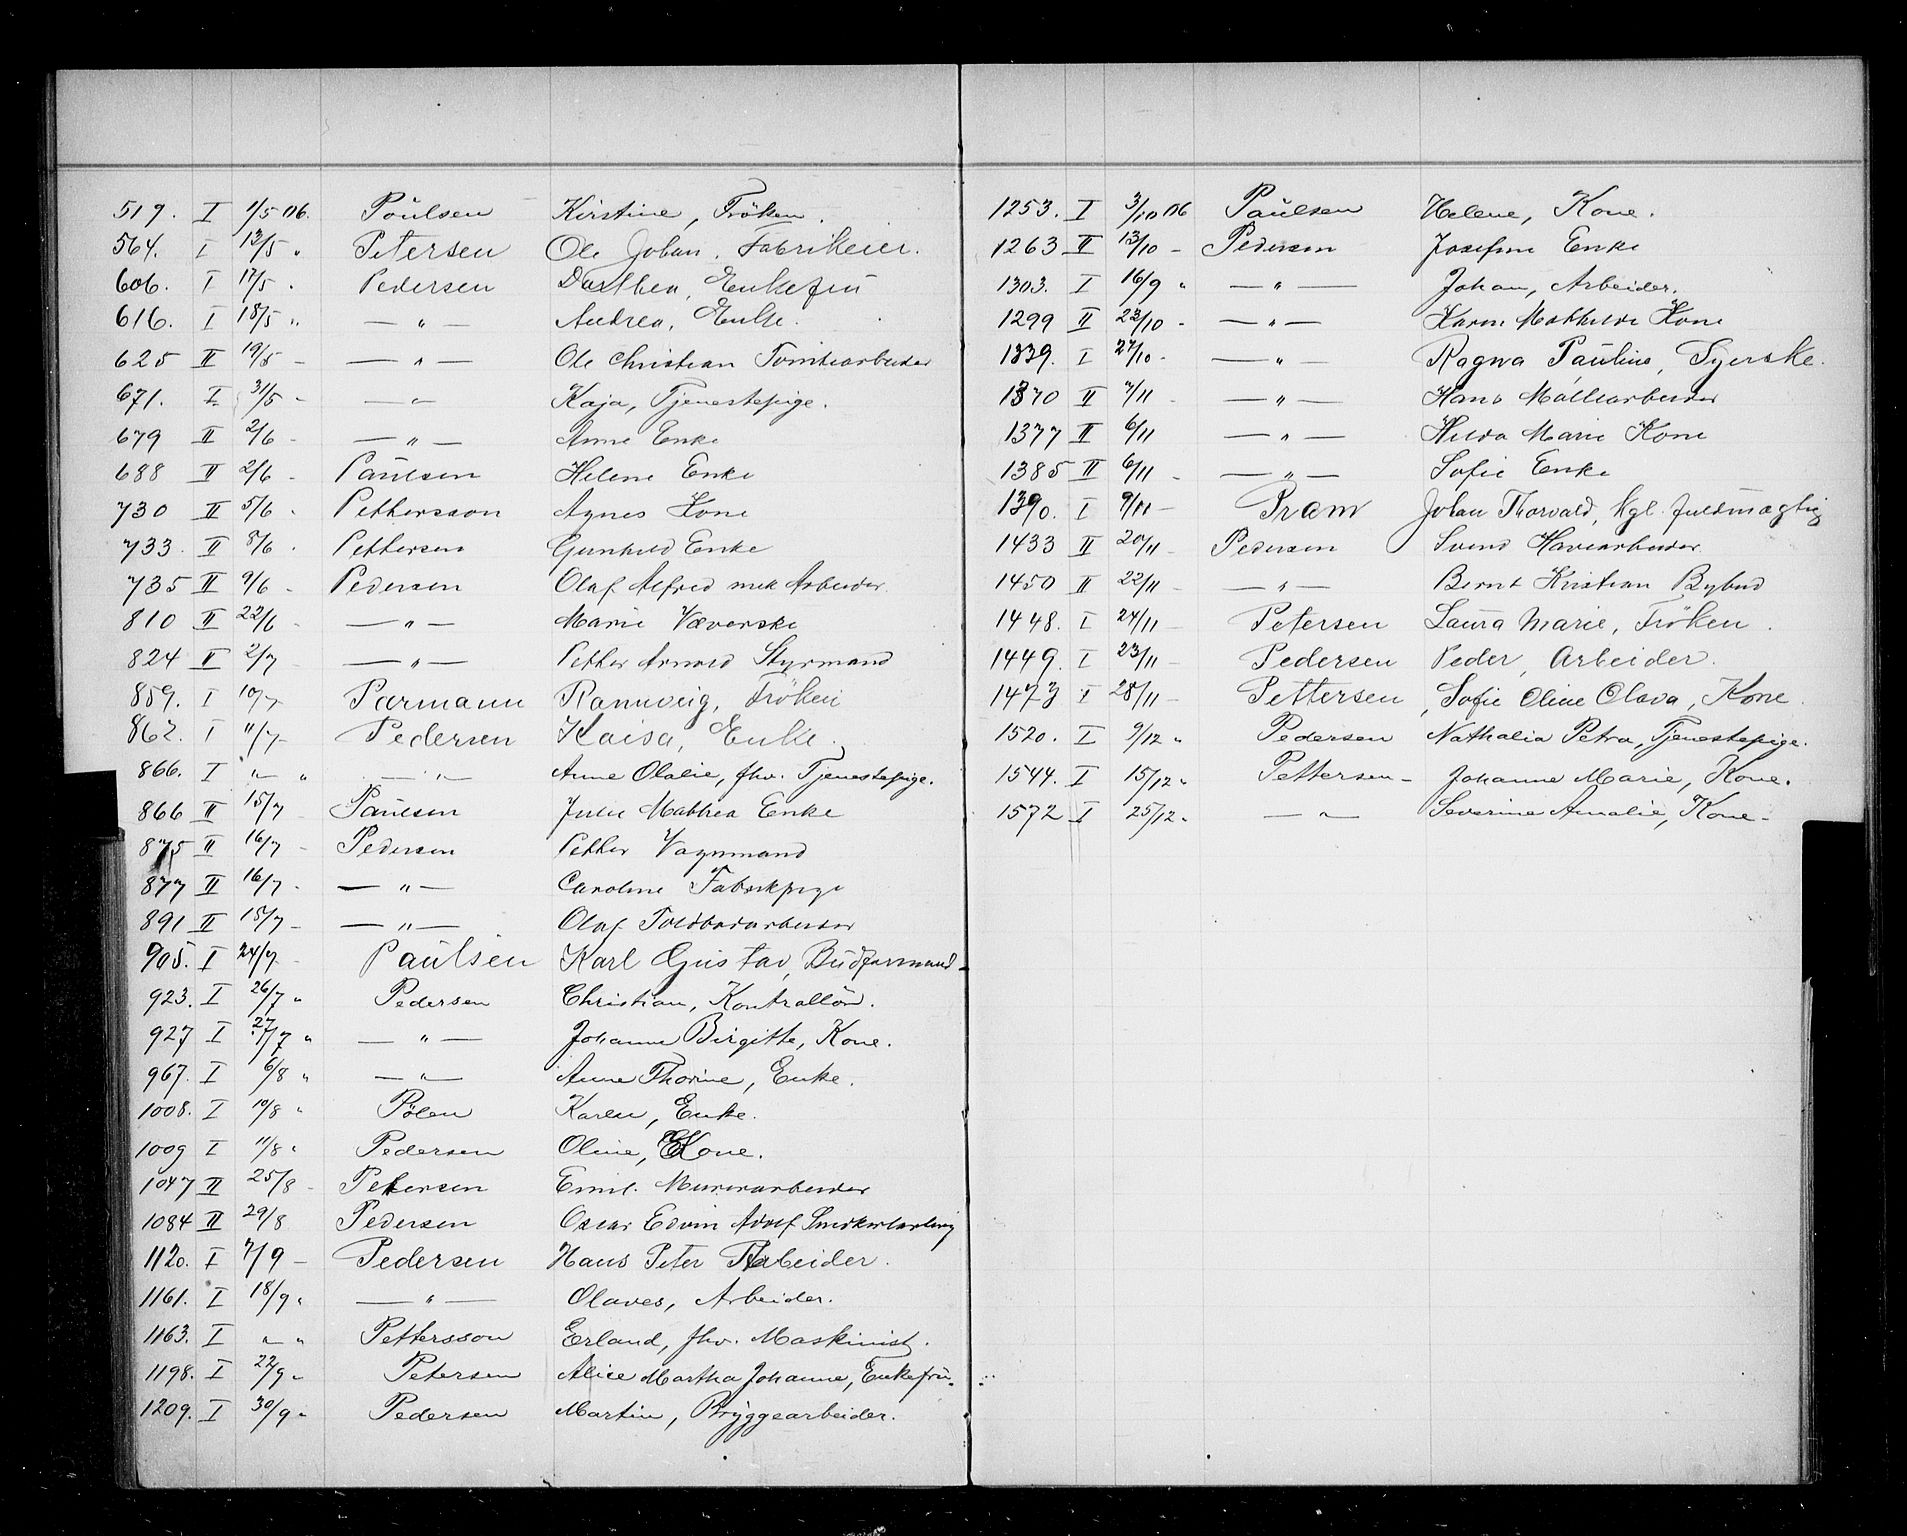 519. I 1/5 06. Poulsen Kirstine, Fröken.
564. I 13/5 " Petersen Ole Johan, Fabrikeier.
606. I 17/5 " Pedersen Dorthea, Enkefru
616. I 18/5 " — " — Andrea, Enke.
625 II 19/5 – — " — Ole Christian Tomtearbeider
671. I 31/5 " — " — Kaja, Tjenestepige.
679 II 2/6 – — " — Anne Enke
688 II 2/6 – Paulsen Helene Enke
730 II 5/6 – Pettersson Agnes Kone
733. II 8/6 – Pettersen Gunhild Enke
735 II 9/6 – Pedersen Olaf Alfred mek Arbeider
810 II 22/6 – — " — Marie Væverske
824 II 2/7 – — " — Petter Arnord Styrmand
859. I 10/7 – Parmann Rannveig, Fröken
862. I 11/7 – Pedersen Kaisa, Enke.
866. I " " — " — Anne Olalie, fhv. Tjenestepige.
866 II 15/7 Paulsen Julie Mathea Enke
875 II 16/7 – Pedersen Petter Vognmand
877 II 16/7 – — " — Caroline Fabrikpige
891 II 15/7 – — " — Olaf Toldbodarbeider
905. I 24/7 – Paulsen Karl Gustav, Budformand
923. I 26/7 " Pedersen Christian, Kontrollör.
927 I 27/7 " — " — Johanne Birgitte, Kone.
967. I 6/8 " — " — Anne Thorine, Enke.
1008. I 10/8 " Pølen Karen, Enke.
1009 I 11/8 " Pedersen Oline, Kone.
1047 II 25/8 – Petersen Emil. Murerarbeider
1084 II 29/8 Pedersen Oscar Edvin Adolf Snedkerlærling
1120. I 7/9 – Pedersen Hans Peter Arbeider.
1161. I 18/9 " — " — Olaves, Arbeider.
1163. I " " Pettersson Erland, fhv. Maskinist.
1198. I 22/9 " Petersen Alice Martha Johanne, Enkefru.
1209. I 30/9 " Pedersen Martin, Bryggearbeider.
1253. I 3/10 06 Paulsen Helene, Kone.
1263 II 13/10 – Pedersen Josefine Enke
1303. I 16/9 " — " — Johan, Arbeider.
1299 II 23/10 – — " — Karen Mathilde Kone
1339. I 27/10 – — " Ragna Pauline, Syerske.
1370 II 7/11 – — " — Hans Møllearbeider
1377 II 6/11 — " — Hilda Marie Kone
1385 II 6/11 – — " — Sofie Enke
1390. I 9/11 – Pram Johan Thorvald, kgl. fuldmægtig
1433 II 20/11 – Pedersen Svend Havearbeider
1450 II 22/11 – — " — Bernt Kristian Bybud
1448. I 24/11 – Petersen Laura Marie, Fröken.
1449. I 23/11 – Pedersen Peder, Arbeider.
1473 I 28/11 – Pettersen, Sofie Oline Olava, Kone.
1520. I 9/12 " Pedersen Nathalia Petra, Tjenestepige.
1544. I 15/12 " Pettersen – Johanne Marie, Kone.
1572 I 25/12 " — " — Severine Amalie, Kone –